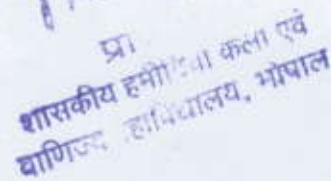 प्रा
शासकीय हमीदिया कला एवं
वाणिज्य महाविद्यालय, भोपाल